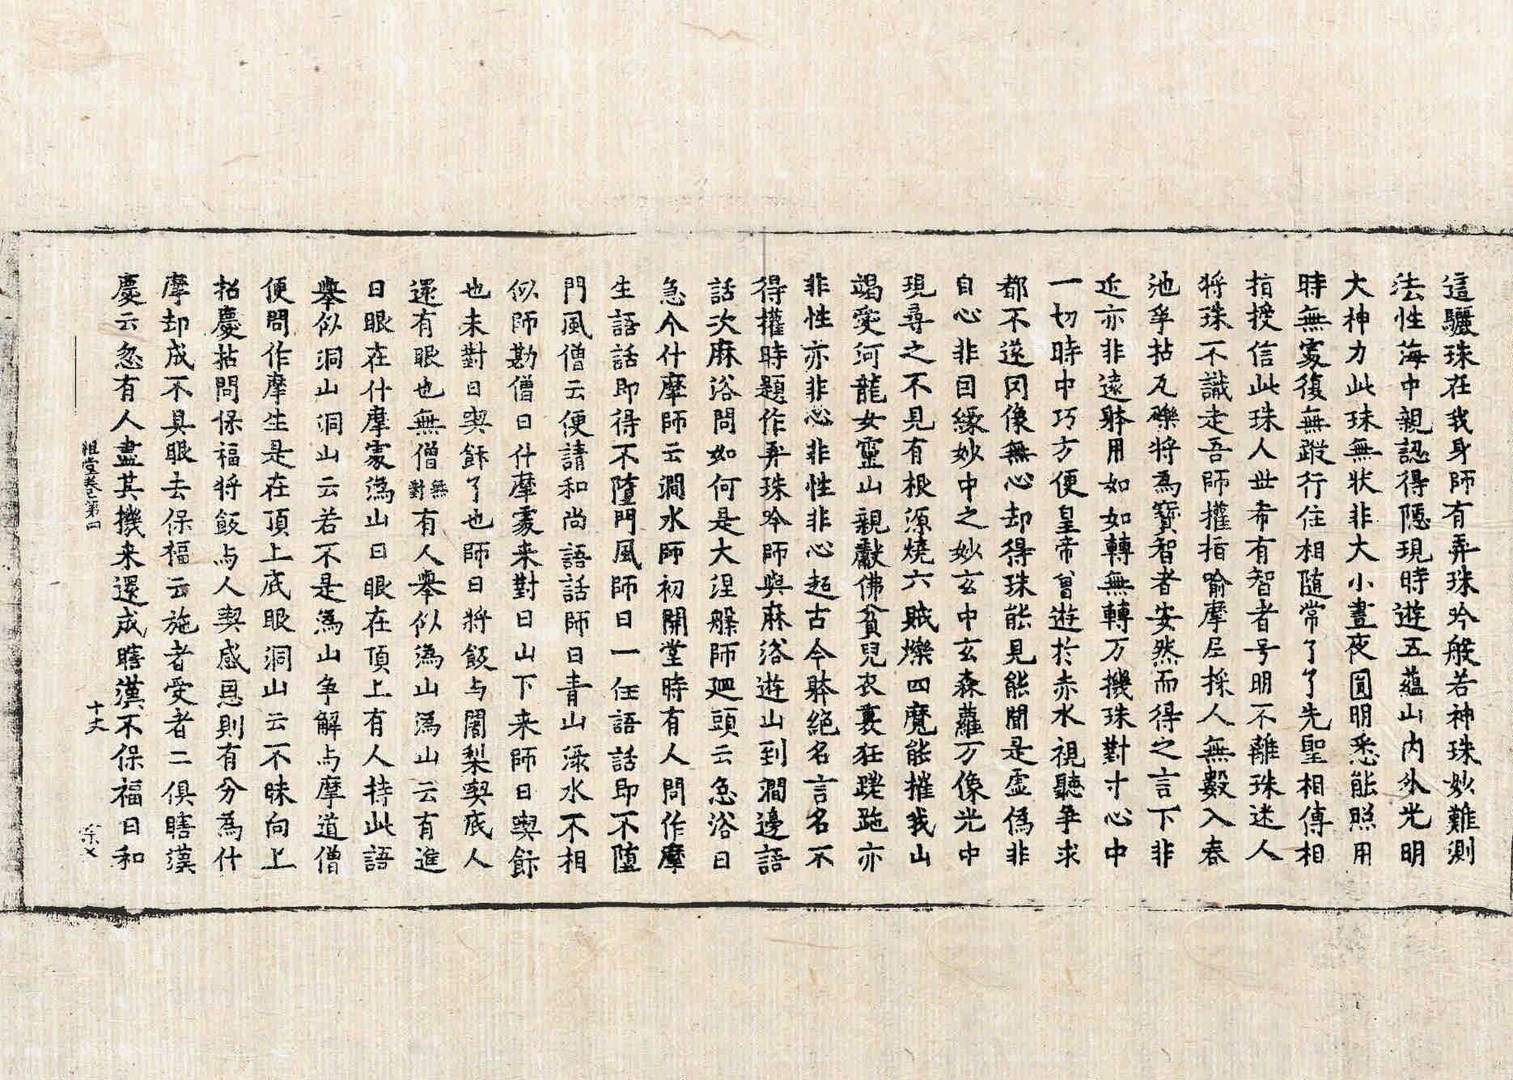 這驪珠在我身師有弄珠吟般若神珠妙難測
法性海中親認得隱現時遊五蘊山內外光明
大神力此珠無狀非大小晝夜圓明悉能照用
時無處復無蹤行住相隨常了了先聖相傳相
指授信此珠人世希有智者号明不離珠迷人
將珠不識走吾師權指喻摩尼採人無數入春
池爭拈瓦礫將為寶智者安然而得之言下非
近亦非遠躰用如如轉無轉万機珠對寸心中
一切時中巧方便皇帝曾遊於赤水視聽爭求
都不遂罔像無心却得珠能見能聞是虛偽非
自心非因緣妙中之妙玄中玄森蘿万像光中
現尋之不見有根源燒六賊爍四魔能摧我山
竭愛河龍女靈山親獻佛貧兒衣裏狂蹉跎亦
非性亦非心非性非心超古今躰絕名言名不
得權時題作弄珠吟師與麻浴遊山到澗邊語
話次麻浴問如何是大涅槃師廻頭云急浴曰
急个什摩師云澗水師初開堂時有人問作摩
生語話即得不墮門風師曰一任語話即不墮
門風僧云便請和尚語話師曰青山淥水不相
似師勘僧曰什摩處来對曰山下来師曰喫飰
也未對曰喫飰了也師曰將飯与闍梨喫底人
還有眼也無僧無對有人舉似溈山溈山云有進
曰眼在什摩處溈山曰眼在頂上有人持此語
舉似洞山洞山云若不是溈山爭解与摩道僧
便問作摩生是在頂上底眼洞山云不昧向上
招慶拈問保福將飯与人喫感恩則有分為什
摩却成不具眼去保福云施者受者二俱瞎漢
慶云忽有人盡其機来還成瞎漢不保福曰和
祖堂卷第四
十丈